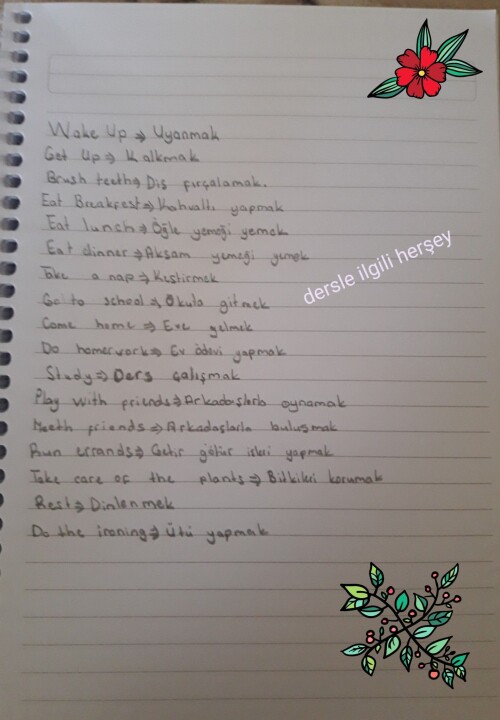 Wake Up ⇒ Uyanmak
Get Up ⇒ Kalkmak
Brush teeth ⇒ Diş fırçalamak.
Eat Breakfest ⇒ Kahvaltı yapmak
Eat lunch ⇒ Öğle yemeği yemek
Eat dinner ⇒ Akşam yemeği yemek
dersle ilgili herşey
Take a nap ⇒ Kestirmek
Go to school ⇒ Okula gitmek
Come home ⇒ Eve gelmek
Do homework ⇒ Ev ödevi yapmak
Study ⇒ Ders çalışmak
Play with friends ⇒ Arkadaşlarla oynamak
Meeth friends ⇒ Arkadaşlarla buluşmak
Run errands ⇒ Getir götür işleri yapmak
Take care of the plants ⇒ Bitkileri korumak
Rest ⇒ Dinlenmek
Do the ironing ⇒ Ütü yapmak